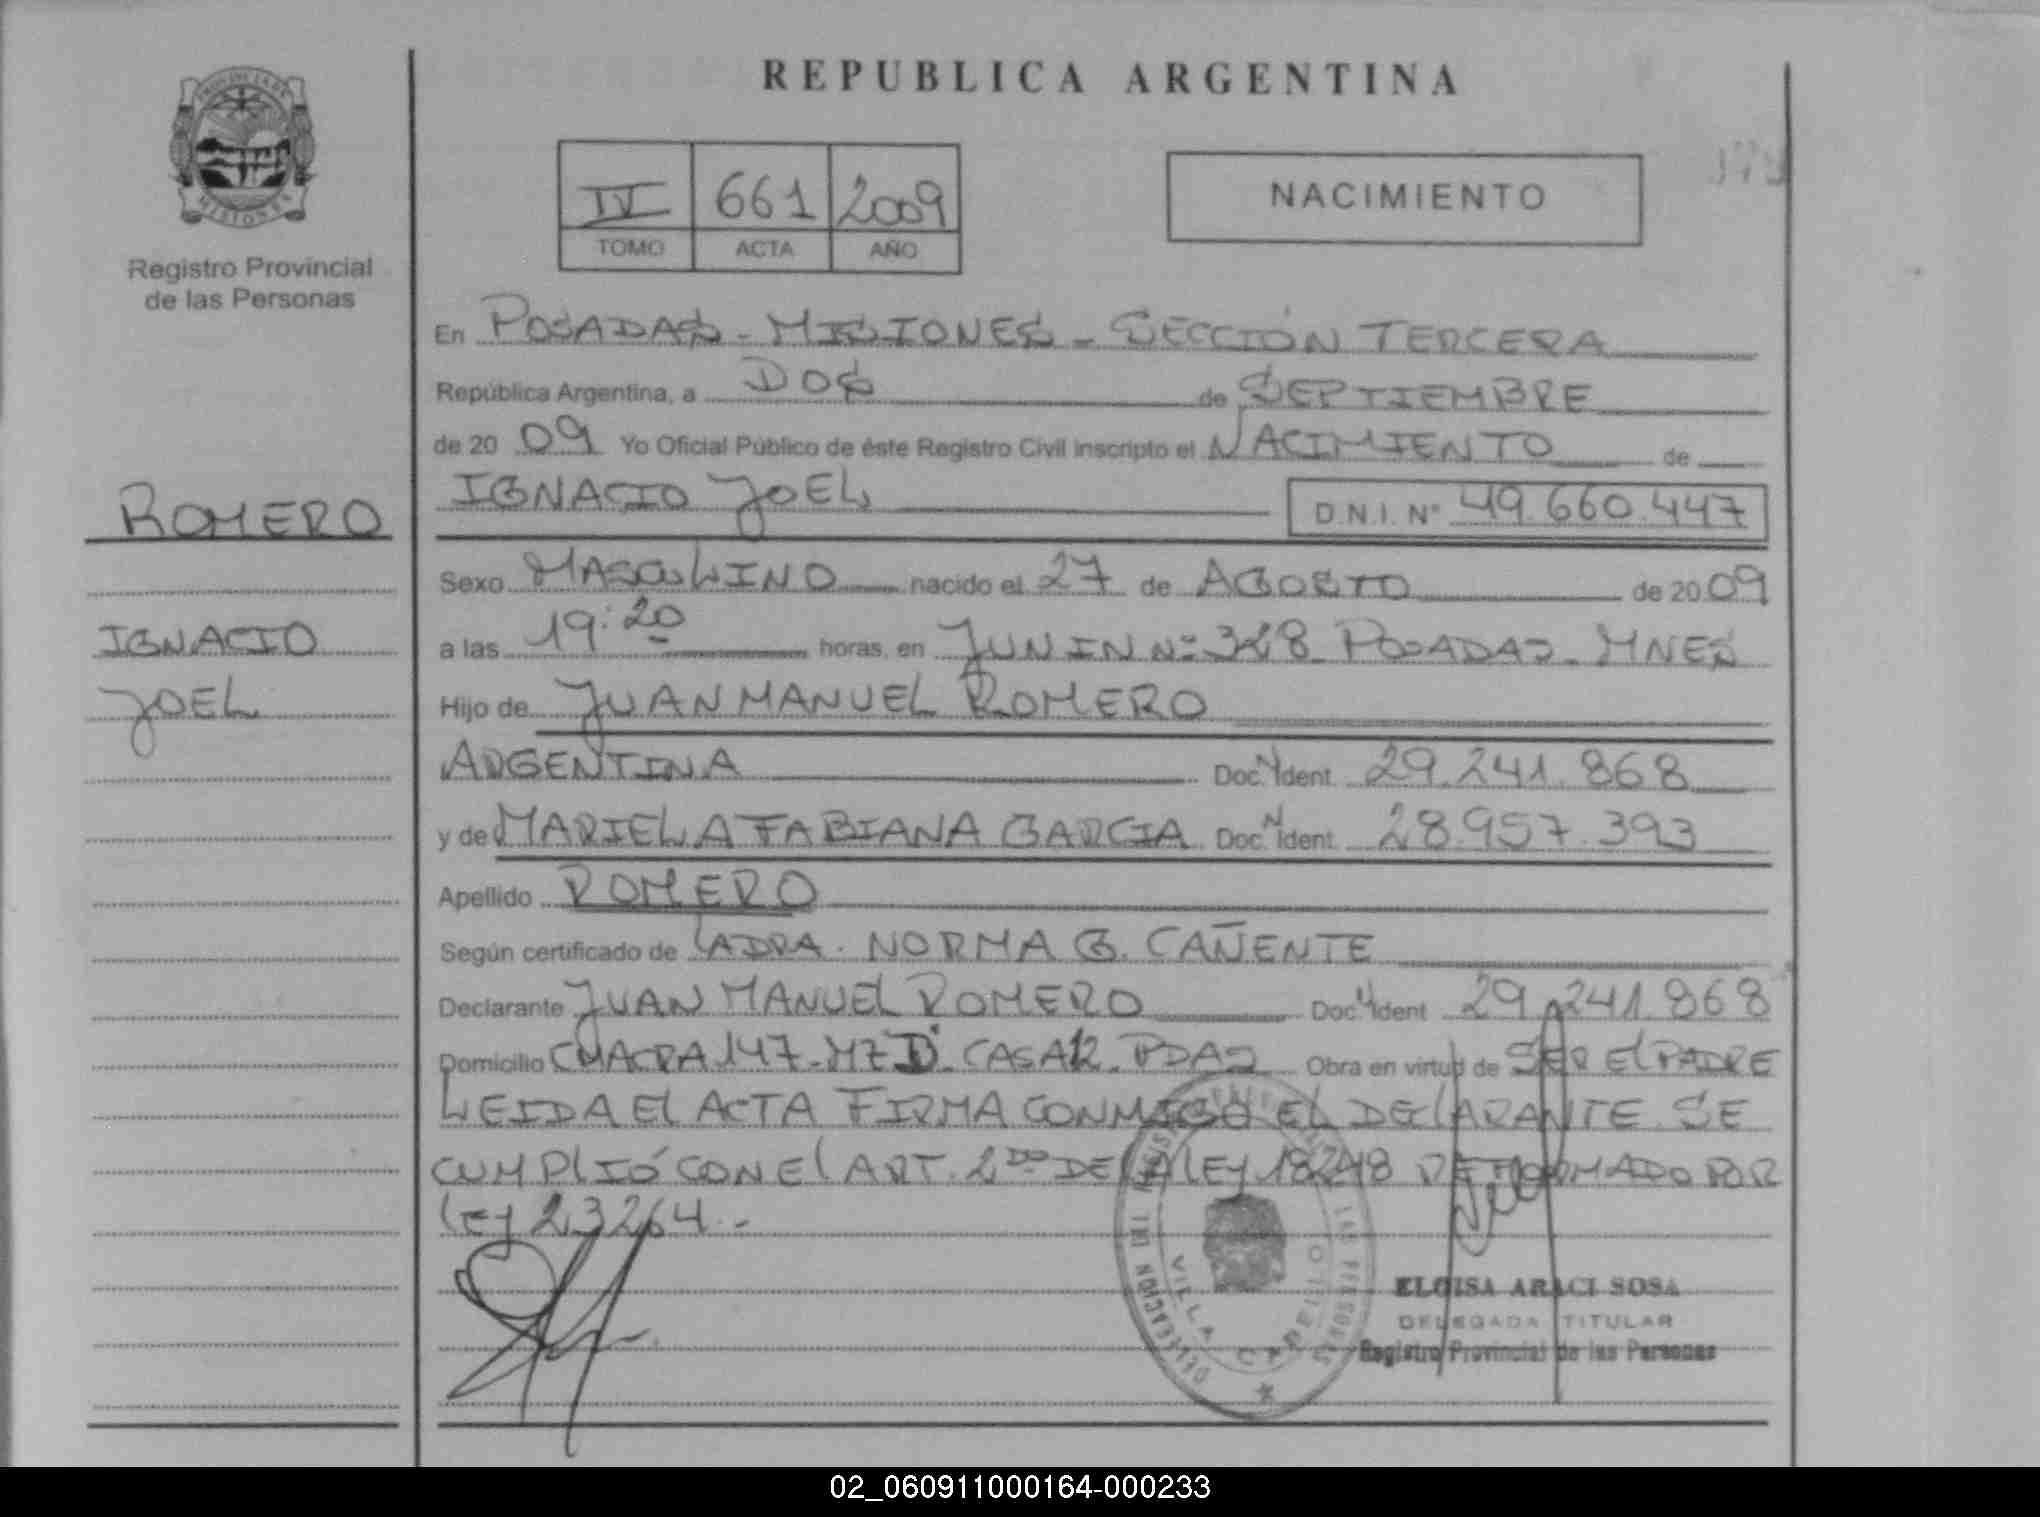 REPUBLICA ARGENTINA
PROVINCIA DE
MISIONES
Registro Provincial
de las Personas
IV 661 2009
TOMO ACTA AÑO
NACIMIENTO
ROMERO
IGNACIO
JOEL
En POSADAS - MISIONES - SECCIÓN TERCERA
República Argentina, a DOS de SEPTIEMBRE
de 20 09 Yo Oficial Público de éste Registro Civil inscripto el NACIMIENTO de
IGNACIO JOEL D.N.I. Nº 49.660.447
Sexo MASCULINO nacido el 27 de AGOSTO de 20 09
a las 19:20 horas, en JUNIN Nº 328 POSADAS - MNES
Hijo de JUAN MANUEL ROMERO
ARGENTINA Doc. Ident. 29.241.868
y de MARIELA FABIANA GARCIA Doc. Ident. 28.957.393
Apellido ROMERO
Según certificado de LA DRA. NORMA G. CAÑENTE
Declarante JUAN MANUEL ROMERO Doc. Ident. 29.241.868
Domicilio CHACRA 147 - MZ D - CASA 12 - PDAS Obra en virtud de SER EL PADRE
LEIDA EL ACTA FIRMA CONMIGO EL DECLARANTE. SE
CUMPLIÓ CON EL ART. 2DO DE LA LEY 18248 REFORMADO POR
LEY 23264.-
DELEGACION DEL REGISTRO LAS PERSONAS
VILLA CABELLO
ELOISA ARACI SOSA
DELEGADA TITULAR
Registro Provincial de las Personas
02_060911000164-000233